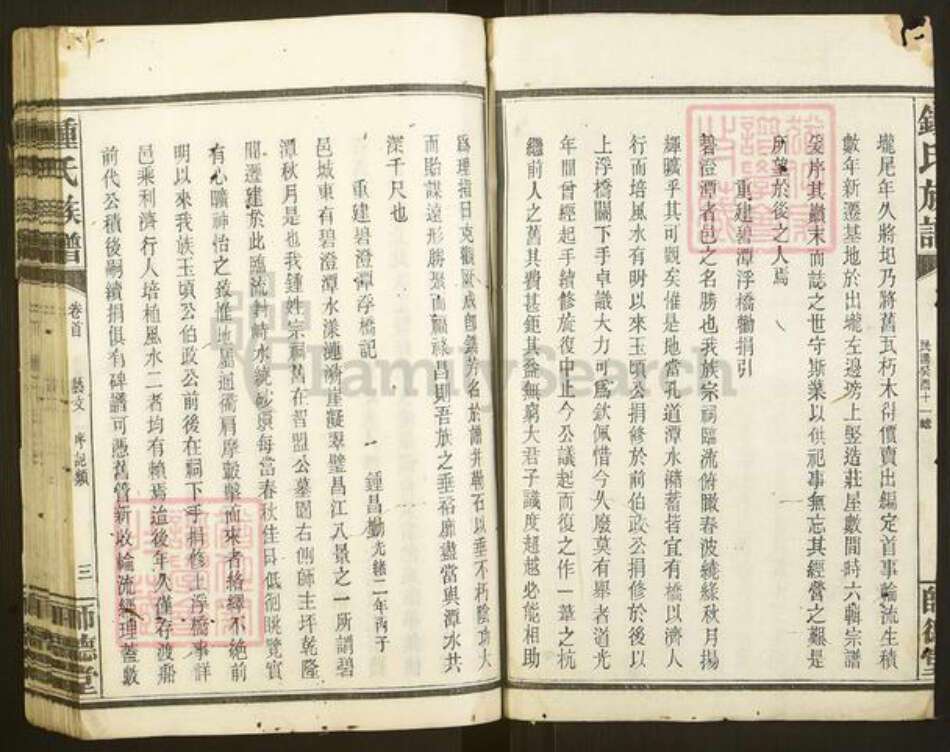 壠尾年久將圯乃將舊瓦朽木得價賣出編定首事輪流生積
數年新遷基地於出壠左邊塝上竪造莊屋數間時六輯宗譜
爰序其顛末而誌之世守斯業以供祀事無忘其經營之艱是
所望於後之人焉
重建碧潭浮橋勸捐引
碧澄潭者邑之名勝也我族宗祠臨流俯瞰春波繞緣秋月揚
輝曠乎其可觀矣惟是地當孔道潭水瀦蓄皆宜有橋以濟人
行而培風水有明以來玉頃公捐修於前伯政公捐修於後以
上浮橋關下手卓識大力可為欽佩惜今久廢莫有舉者道光
年間曾經起手續修旋復中止今公議起而復之作一葦之杭
繼前人之舊其費甚鉅其益無窮大君子識度超越必能相助
為理指日克觀厥成卽鐫芳名於譜并勒石以垂不朽陰功大
而貽謀遠形勝聚而福祿昌則吾族之垂裕靡盡當與潭水共
深千尺也
鍾昌勷光緒二年丙子
重建碧澄潭浮橋記
邑城東有碧澄潭水漾漣漪崖擬翠璧昌江八景之一所謂碧
潭秋月是也我鍾姓宗祠舊在習盟公墓園右側師主坪乾隆
間遷建於此臨流對峙水繞砂環每當春秋佳日低徊眺覽實
有心曠神怡之致惟地屬通衢肩摩轂擊而來者絡繹不絶前
明以來我族玉頃公伯政公前後在祠下手捐修上浮橋事詳
邑乘利濟行人培植風水二者均有賴焉迨後年久僅存渡船
前代公積後嗣續捐俱有碑譜可憑舊管新收輪流經理蓋數
鍾氏族譜
卷首
藝文
序記類
三
師德堂
鍾氏族譜
師德堂
FamilySearch